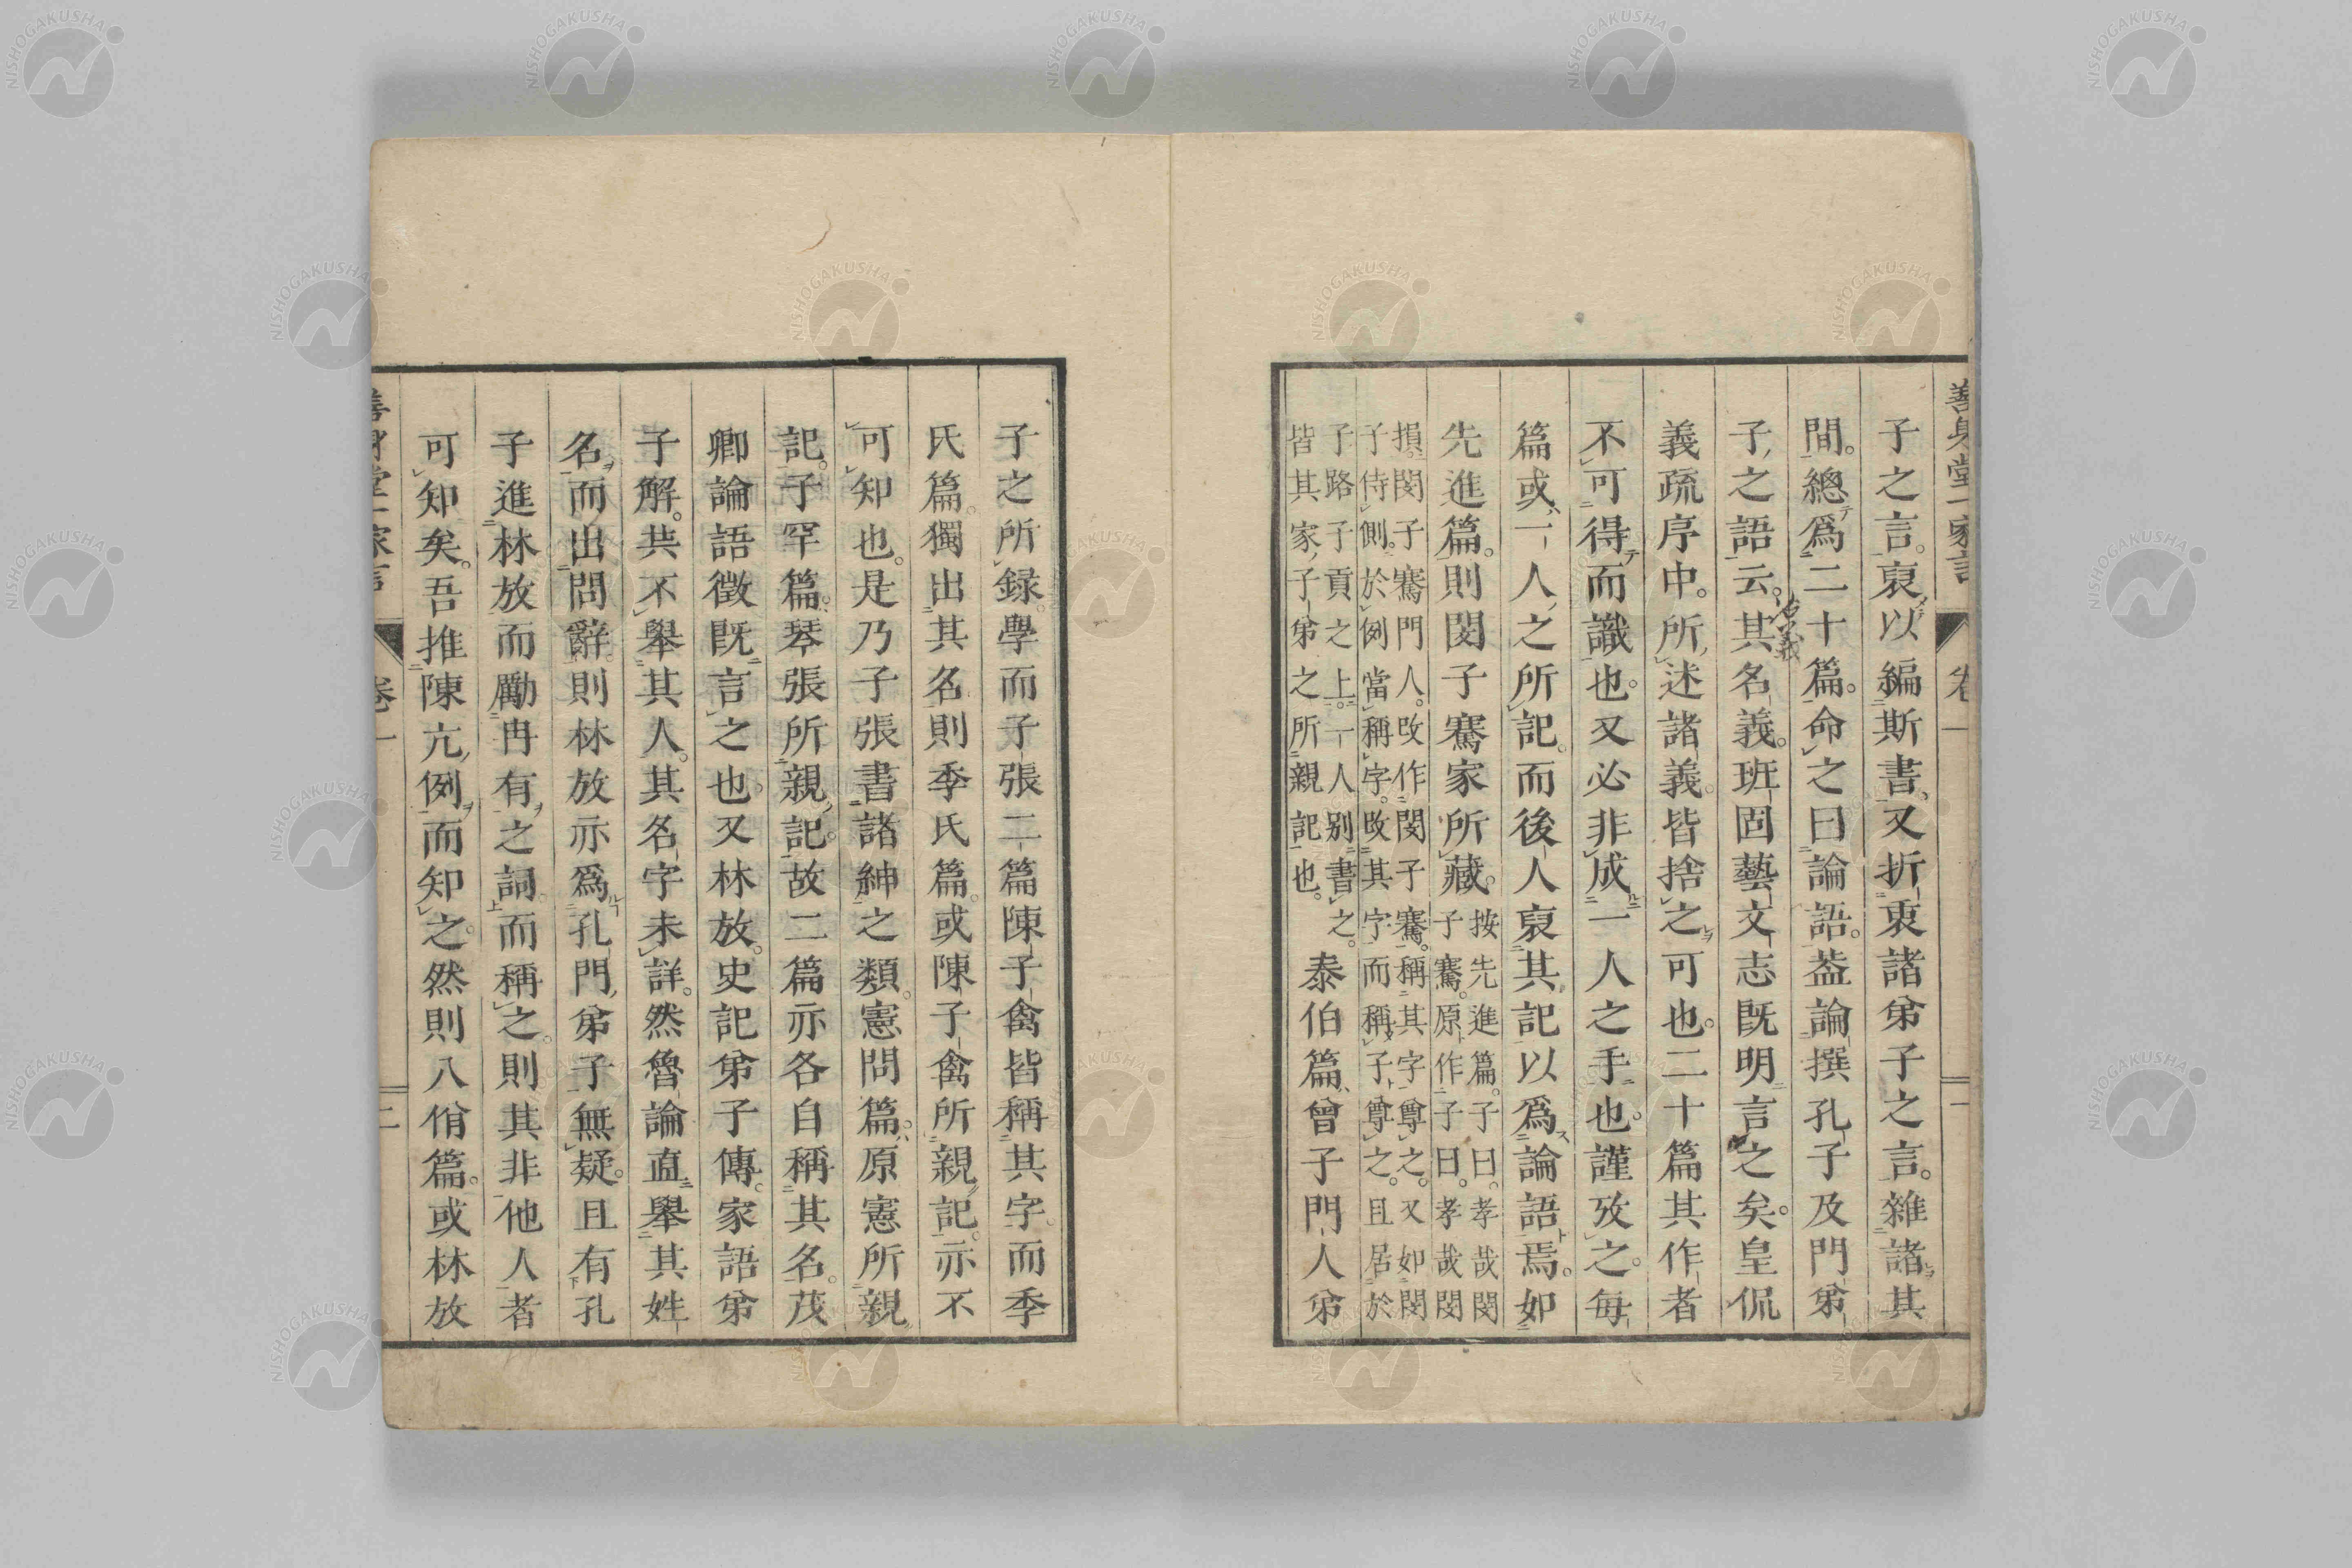 善身堂一家言 卷一 一
子之言。裒以編斯書、又折衷諸弟子之言。雜諸其
間。總爲二十篇。命之曰論語。葢論撰孔子及門弟
子之語云。其名義。班固藝文志既明言之矣。皇侃
義疏序中。所述諸義。皆捨之可也。二十篇其作者
不可得而識也。又必非成一人之手也。謹攷之。每
篇或一人之所記。而後人裒其記以爲論語焉。如
先進篇。則閔子騫家所藏。
按先進篇。子曰。孝哉閔
子騫。原作子曰。孝哉閔
損。閔子騫門人。改作閔子騫。稱其字尊之。又如閔
子侍側。於例當稱字。改其字而稱子尊之。且居於
子路子貢之上。一人別書之。
皆其家子弟之所親記也。
泰伯篇、曾子門人弟
子之所錄。學而子張二篇陳子禽皆稱其字。而季
氏篇。獨出其名則季氏篇。或陳子禽所親記。亦不
可知也。是乃子張書諸紳之類。憲問篇。原憲所親
記。子罕篇。琴張所親記。故二篇亦各自稱其名。茂
卿論語徵既言之也。又林放。史記弟子傳。家語弟
子解。共不舉其人。其名字未詳。然魯論直舉其姓
名而出問辭。則林放亦爲孔門弟子無疑。且有孔
子進林放而勵冉有之詞。而稱之。則其非他人者
可知矣。吾推陳亢例而知之。然則八佾篇。或林放
善身堂一家言 卷一 二